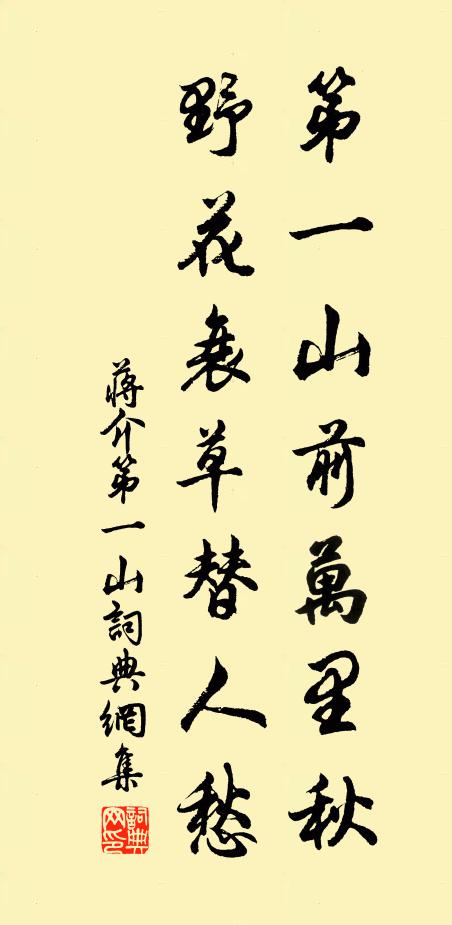 第一山前萬里秋
野花衰草替人愁
蔣介第一山詞典網集
詞典網印